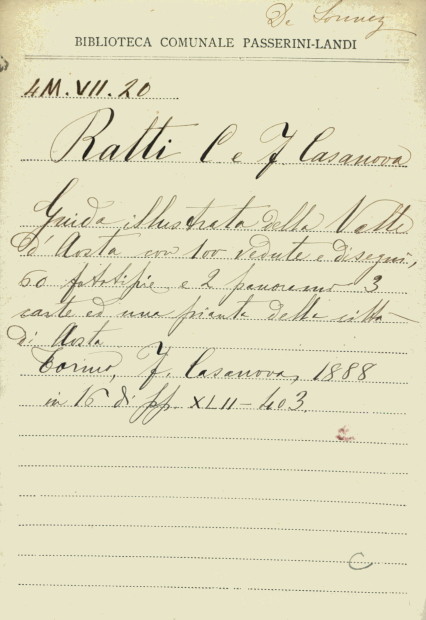 De
BIBLIOTECA COMUNALE PASSERINI-LANDI
4M.VII.20
Ratti C e F. Casanova
Guida illustrata della Valle
d'Aosta con 100 vedute e disegni,
60 fototipie e 2 panorami 3
carte ed una pianta della città
di Aosta
Torino, F. Casanova, 1888
in 16 di pp. XLII-403.
C